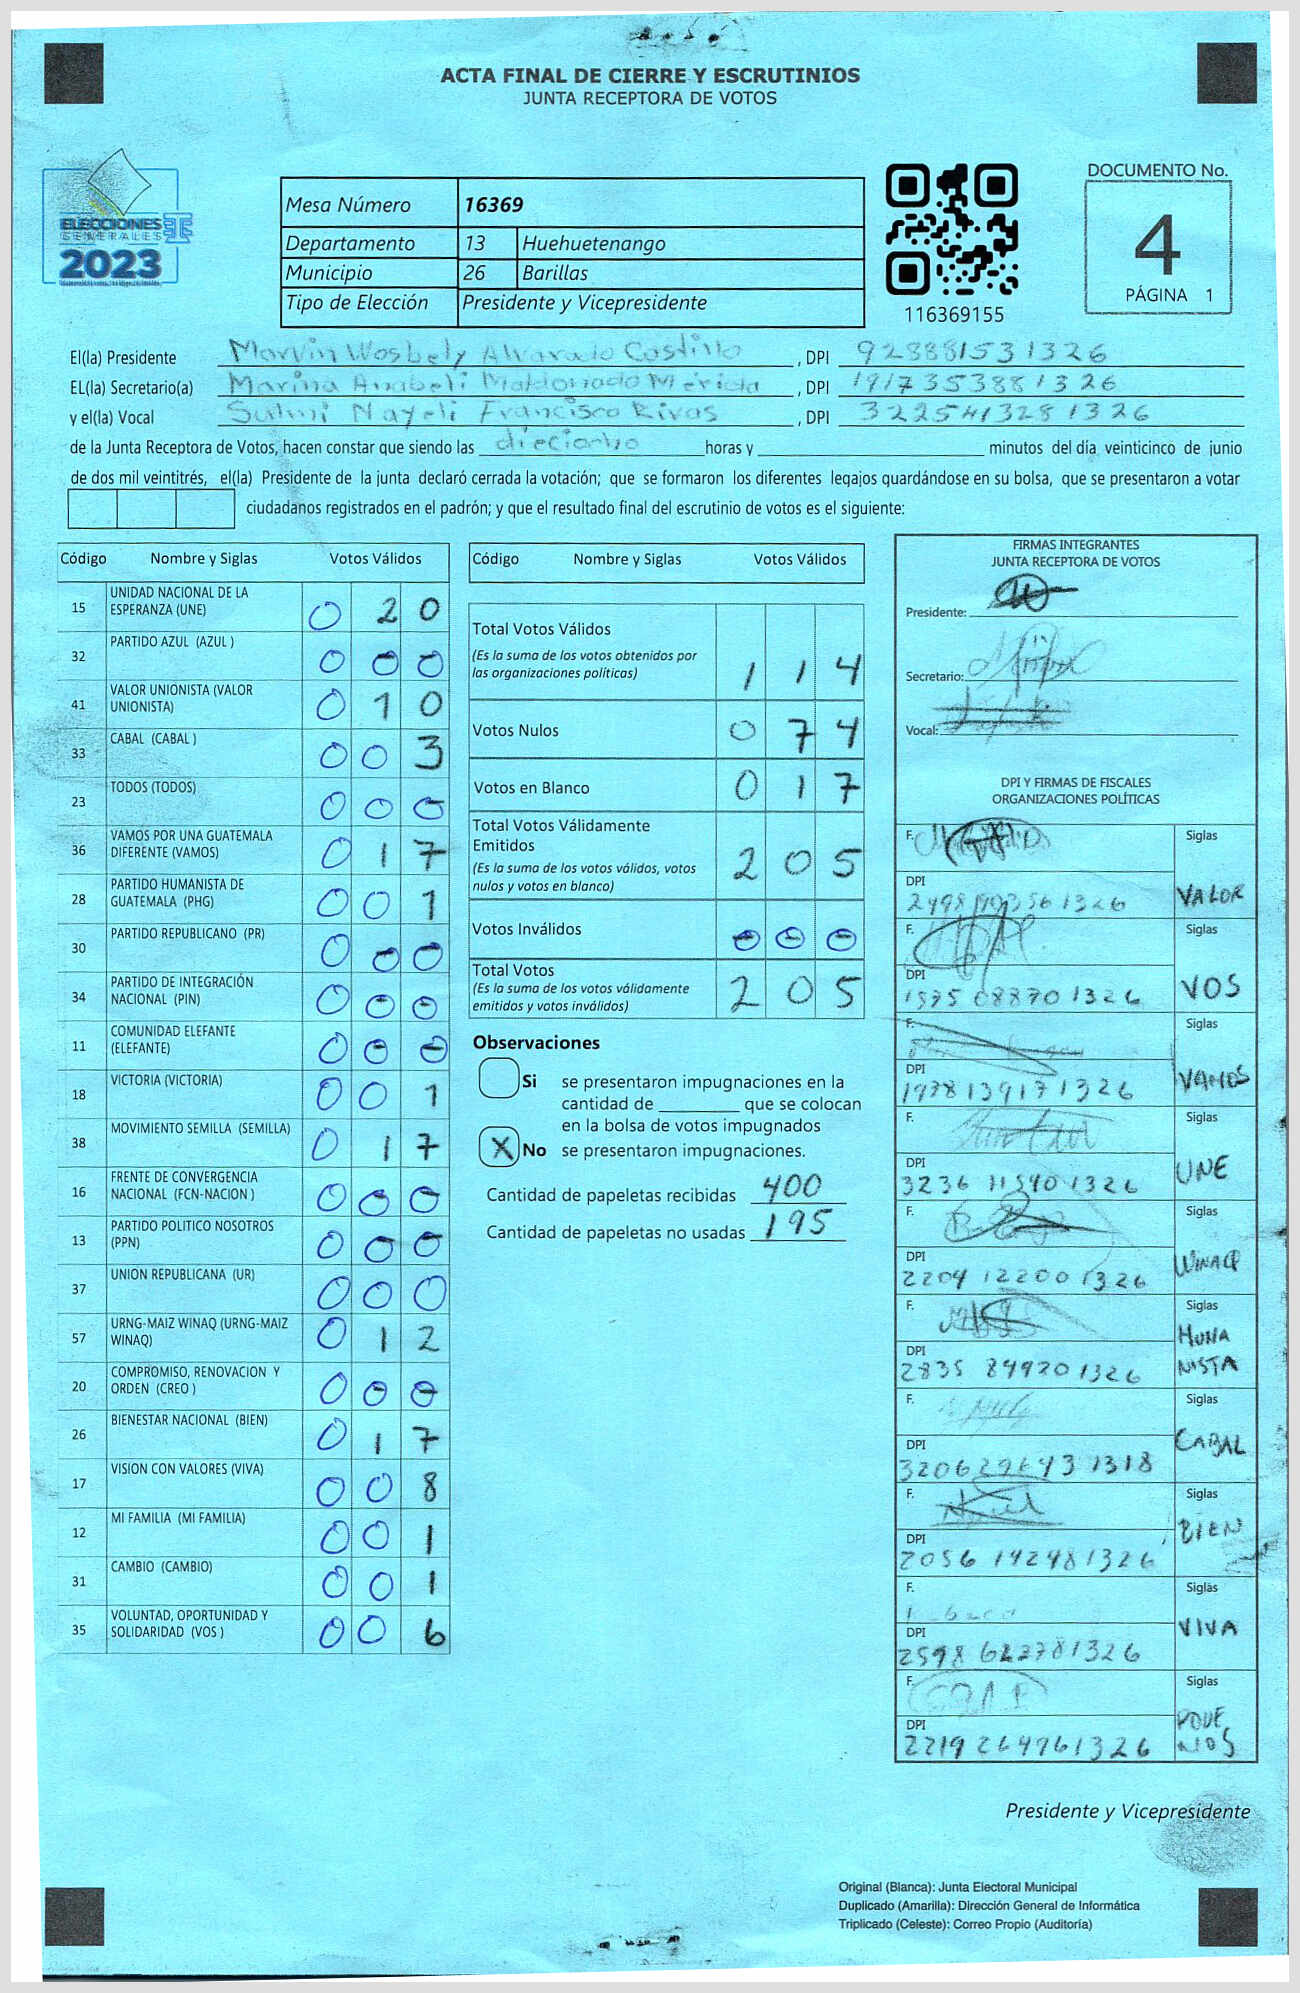 ACTA FINAL DE CIERRE Y ESCRUTINIOS
JUNTA RECEPTORA DE VOTOS
ELECCIONES
GENERALES
2023
Mesa Número 16369
Departamento 13 Huehuetenango
Municipio 26 Barillas
Tipo de Elección Presidente y Vicepresidente
116369155
DOCUMENTO No.
4
PÁGINA 1
El(la) Presidente Marvin Wosbely Alvarado Castillo, DPI 928881531326
EL(la) Secretario(a) Marina Anabeli Maldonado Merida, DPI 1917353881326
y el(la) Vocal Sulmi Nayeli Francisco Rivas, DPI 3225413281326
de la Junta Receptora de Votos, hacen constar que siendo las dieciocho horas y minutos del día veinticinco de junio
de dos mil veintitrés, el(la) Presidente de la junta declaró cerrada la votación; que se formaron los diferentes legajos quardándose en su bolsa, que se presentaron a votar
ciudadanos registrados en el padrón; y que el resultado final del escrutinio de votos es el siguiente:
Código Nombre y Siglas Votos Válidos
15 UNIDAD NACIONAL DE LA ESPERANZA (UNE) 0 2 0
32 PARTIDO AZUL (AZUL ) 0 0 0
41 VALOR UNIONISTA (VALOR UNIONISTA) 0 1 0
33 CABAL (CABAL ) 0 0 3
23 TODOS (TODOS) 0 0 0
36 VAMOS POR UNA GUATEMALA DIFERENTE (VAMOS) 0 1 7
28 PARTIDO HUMANISTA DE GUATEMALA (PHG) 0 0 1
30 PARTIDO REPUBLICANO (PR) 0 0 0
34 PARTIDO DE INTEGRACIÓN NACIONAL (PIN) 0 0 0
11 COMUNIDAD ELEFANTE (ELEFANTE) 0 0 0
18 VICTORIA (VICTORIA) 0 0 1
38 MOVIMIENTO SEMILLA (SEMILLA) 0 1 7
16 FRENTE DE CONVERGENCIA NACIONAL (FCN-NACION ) 0 0 0
13 PARTIDO POLITICO NOSOTROS (PPN) 0 0 0
37 UNION REPUBLICANA (UR) 0 0 0
57 URNG-MAIZ WINAQ (URNG-MAIZ WINAQ) 0 1 2
20 COMPROMISO, RENOVACION Y ORDEN (CREO ) 0 0 0
26 BIENESTAR NACIONAL (BIEN) 0 1 7
17 VISION CON VALORES (VIVA) 0 0 8
12 MI FAMILIA (MI FAMILIA) 0 0 1
31 CAMBIO (CAMBIO) 0 0 1
35 VOLUNTAD, OPORTUNIDAD Y SOLIDARIDAD (VOS ) 0 0 6
Código Nombre y Siglas Votos Válidos
Total Votos Válidos
(Es la suma de los votos obtenidos por las organizaciones políticas) 1 1 4
Votos Nulos 0 7 4
Votos en Blanco 0 1 7
Total Votos Válidamente Emitidos
(Es la suma de los votos válidos, votos nulos y votos en blanco) 2 0 5
Votos Inválidos 0 0 0
Total Votos
(Es la suma de los votos válidamente emitidos y votos inválidos) 2 0 5
Observaciones
Si se presentaron impugnaciones en la
cantidad de que se colocan
en la bolsa de votos impugnados
X No se presentaron impugnaciones.
Cantidad de papeletas recibidas 400
Cantidad de papeletas no usadas 195
FIRMAS INTEGRANTES
JUNTA RECEPTORA DE VOTOS
Presidente:
Secretario:
Vocal:
DPI Y FIRMAS DE FISCALES
ORGANIZACIONES POLÍTICAS
F. Siglas
DPI VALOR
F. Siglas
DPI 1575 08870 1326 VOS
F. Siglas
DPI 1978139171326 VAMOS
F. Siglas
DPI 3236 11540 1326 UNE
F. Siglas
DPI 2204 12200 1326 WINAQ
F. Siglas
DPI 2835 849201326 HUMA NISTA
F. Siglas
DPI 3206296431318 CABAL
F. Siglas
DPI 2056 142481326 BIEN
F. Siglas
DPI 2598 622781326 VIVA
F. Siglas
DPI 2219 264761326 PODE MOS
Presidente y Vicepresidente
Original (Blanca): Junta Electoral Municipal
Duplicado (Amarilla): Dirección General de Informática
Triplicado (Celeste): Correo Propio (Auditoría)